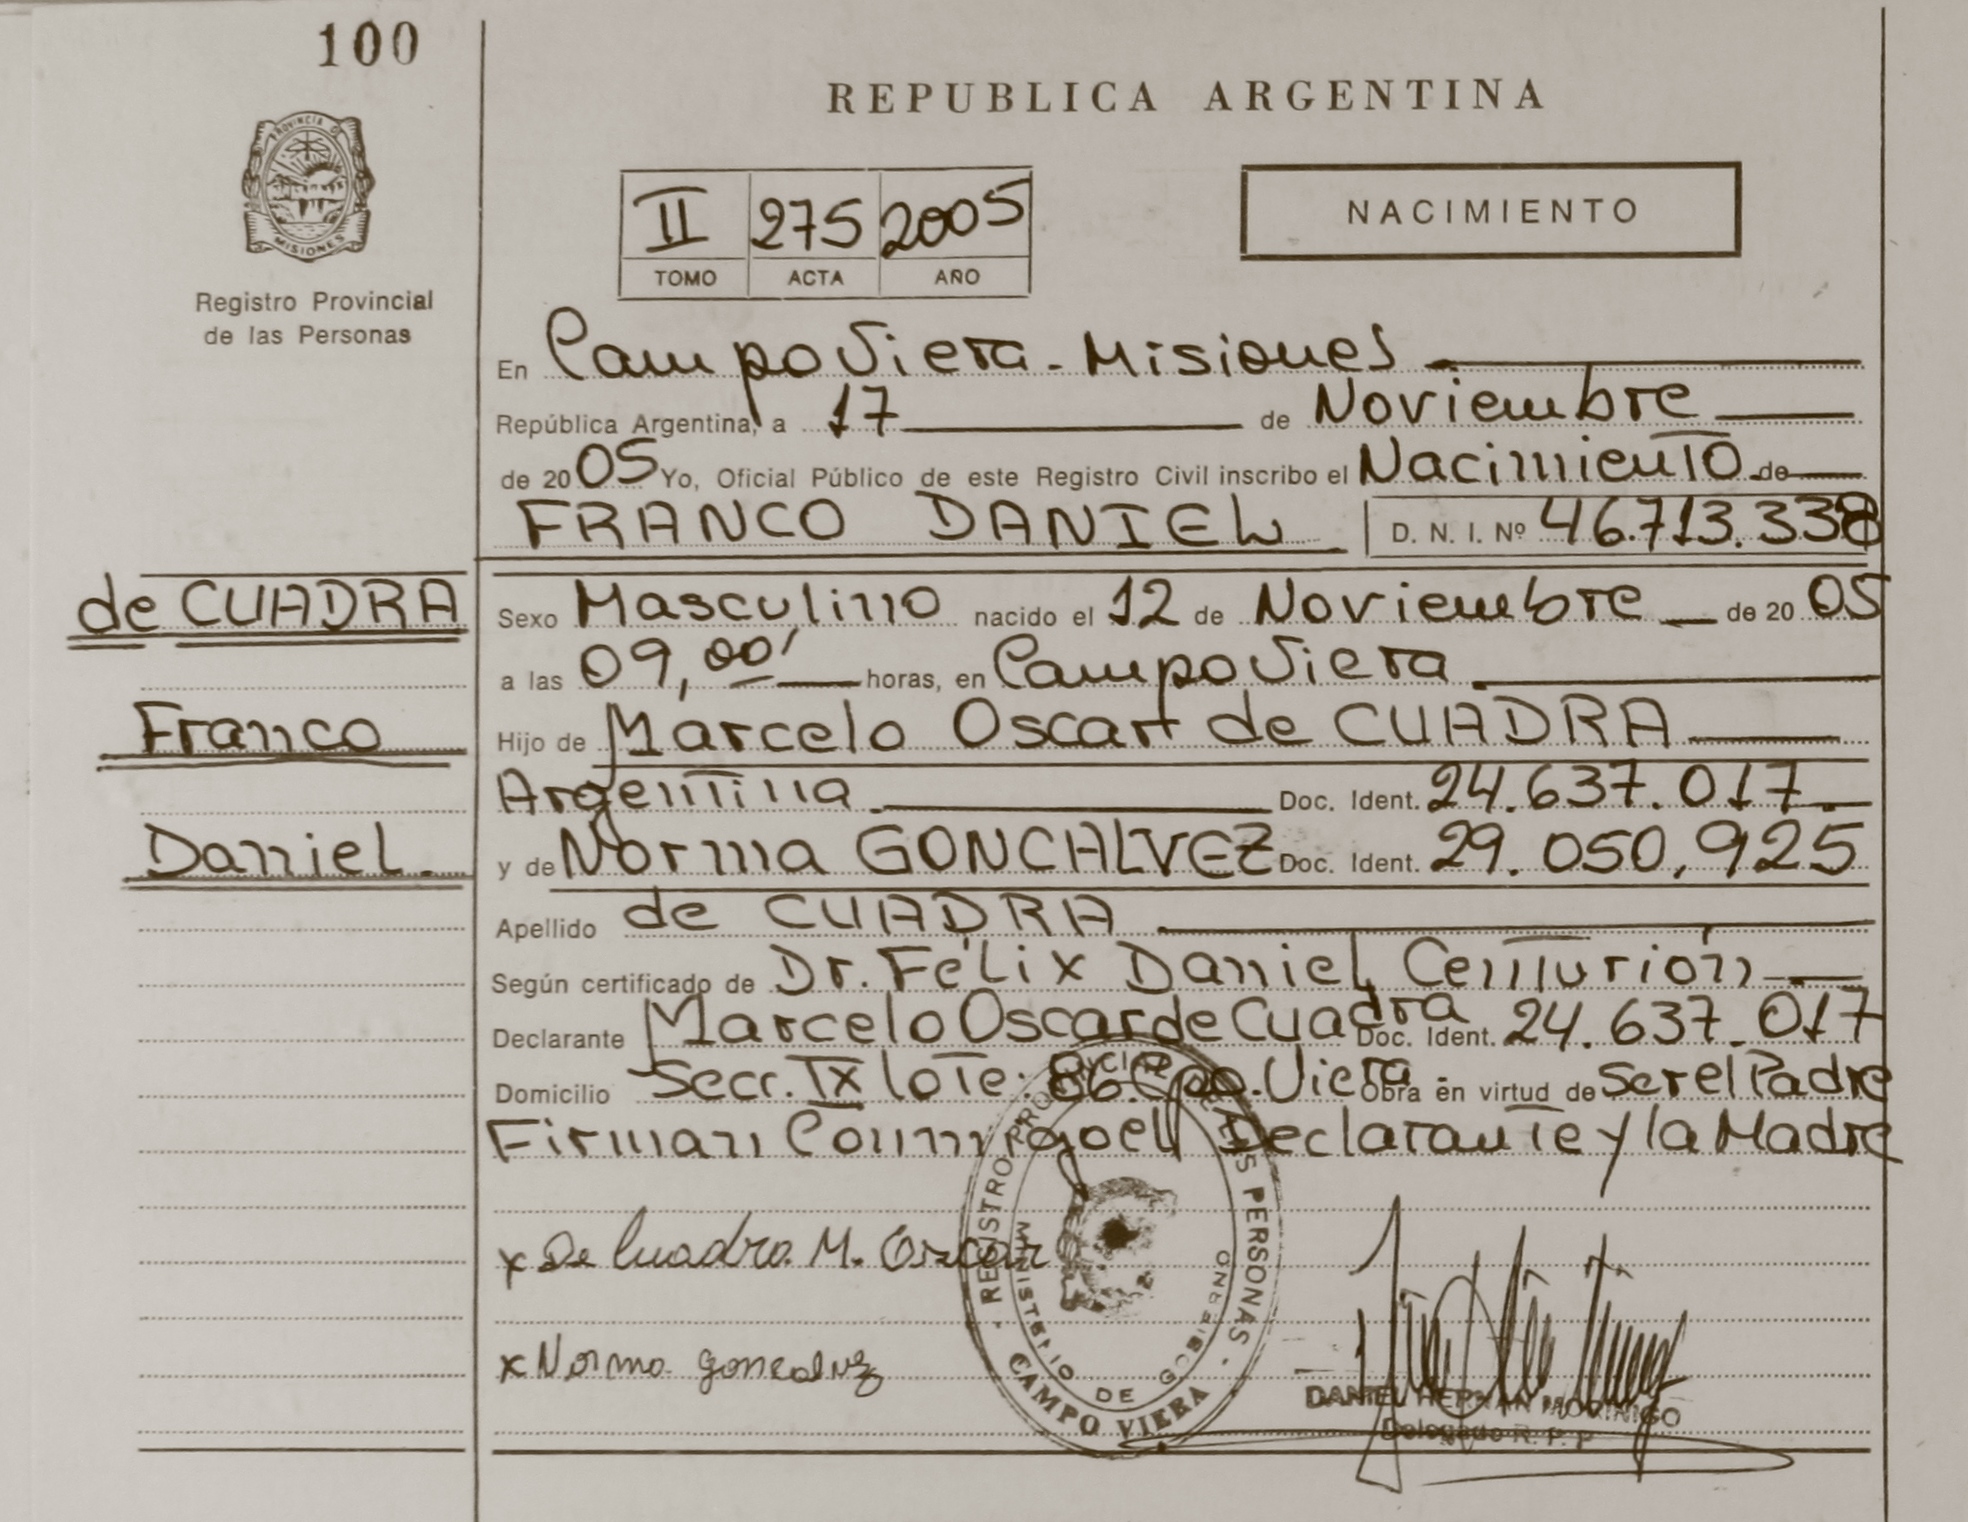 100
PROVINCIA DE
MISIONES
Registro Provincial
de las Personas
REPUBLICA ARGENTINA
II 275 2005
TOMO ACTA AÑO
NACIMIENTO
En Campo Viera - Misiones
República Argentina, a 17 de Noviembre
de 2005 Yo, Oficial Público de este Registro Civil inscribo el Nacimiento de
FRANCO DANIEL D. N. I. Nº 46.713.338
de CUADRA
Franco
Daniel.
Sexo Masculino nacido el 12 de Noviembre de 2005
a las 09,00' horas, en Campo Viera
Hijo de Marcelo Oscar de CUADRA
Argentina Doc. Ident. 24.637.017.
y de Norma GONCHALVEZ Doc. Ident. 29.050.925
Apellido de CUADRA
Según certificado de Dr. Félix Daniel Centurión
Declarante Marcelo Oscar de Cuadra Doc. Ident. 24.637.017
Domicilio Secc. IX lote: 86. Cpo. Viera. Obra en virtud de Ser el Padre
Firman Conmigo el Declarante y la Madre
x De Cuadra. M. Oscar
x Norma
REGISTRO PROVINCIAL DE LAS PERSONAS
MINISTERIO DE GOBIERNO
CAMPO VIERA
DANIEL HERNAN MORINIGO
Delegado R. P. P.